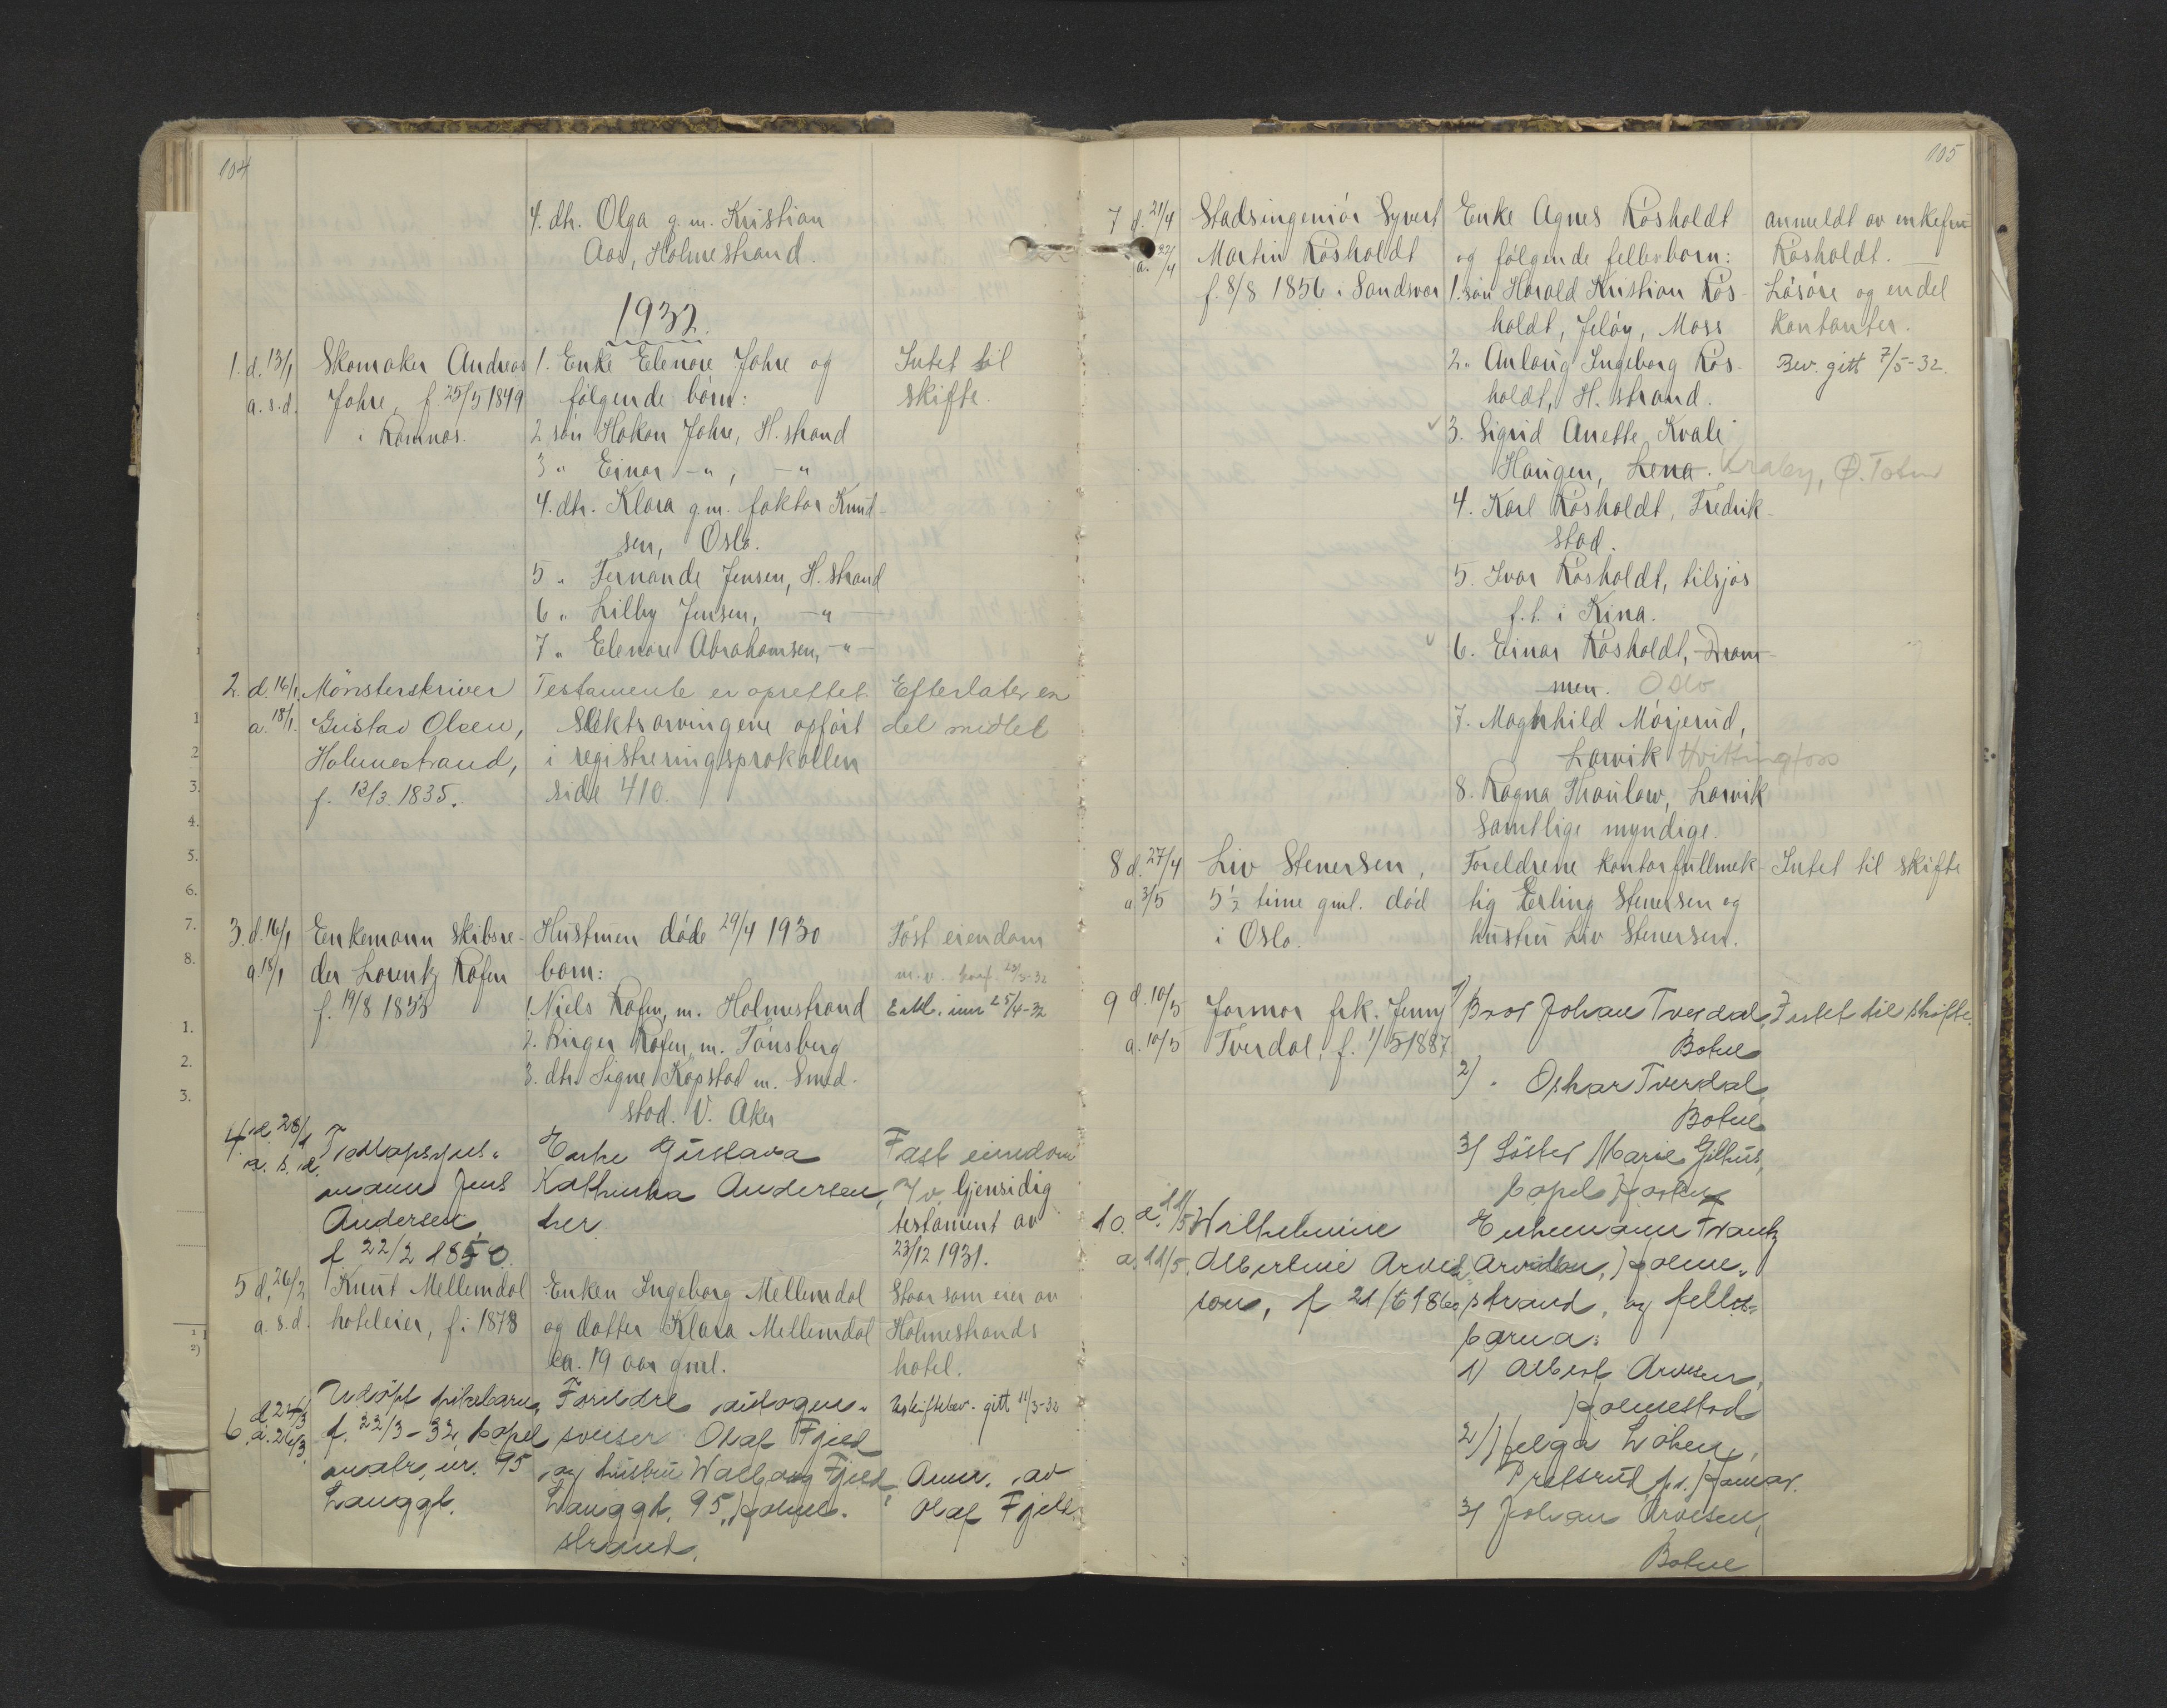 104
4. dtr. Olga g. m. Kristian
Aas, Holmestrand.
1932.
1. d. 13/1 Skomaker Andreas 1. Enke Elenore Jahre og Intet til
a. s. d. Jahre, f. 25/5 1849 følgende børn: skifte.
i Ramnes. 2 søn Håkon Jahre, H. strand
3 " Einar - " , - "
4. dtr. Klara g. m. faktor Knud-
sen, Oslo.
5 " Fernande Jensen, H. strand
6 " Lilly Jensen, - " -
7 " Elenore Abrahamsen, - " -
2. d. 16/1. Mønsterskriver Testamente er oprettet Efterlater en
a. 18/1. Gustav Olsen, Slektsarvingene opført del midler
Holmestrand, i registreringsprokollen
f. 13/3. 1835. side 410.
3. d. 16/1 Enkemann skibsre- Hustruen døde 29/4 1930 Fast eiendom
a. 18/1 der Lorentz Rafen barn: m. v.
f. 19/8 1855 1. Niels Rafen, m. Holmestrand 25/4-32
2. Birger Rafen, m. Tønsberg
3. dtr. Signe Kopstad m. Smed-
stad. V. Aker
4. d. 28/1 Enke Gustava Fast eiendom
a. s. d. mann Jens Kathinka Andersen, Gjensidig
Andersen, her testament av
f. 22/2 1850. 23/12 1931.
5 d. 26/2 Knut Mellemdal Enken Ingeborg Mellemdal Staar som eier av
a. s. d. hoteleier, f. i 1878 og datter Klara Mellemdal Holmestrands
ca. 19 aar gml. hotel.
d. 24/3 Udøpt pikebarn, Foreldre autogen- Uskiftebev. gitt 11/3-32
6 a. 26/3. f. 22/3-32, sveiser Olaf Fjeld
matr. nr. 95 og hustru Walborg Fjeld, Anm. av
Langgt. Langgt. 95, Holme- Olaf Fjeld
strand.
105
7 d. 21/4 Stadsingeniør Syvert Enke Agnes Røsholdt anmeldt av enkefru
a. 22/4 Martin Røsholdt og følgende fellesbarn: Røsholdt. -
f. 8/8 1856 i Sandsvær 1. søn Harald Kristian Røs- Løsøre og endel
holdt, Jeløy, Moss kontanter.
2. Anlaug Ingeborg Røs- Bev. gitt 7/5-32.
holdt, H. strand.
3. Sigrid Anette Kvale
Haugen, Lena. Kraby, Ø. Toten
4. Karl Røsholdt, Fredrik-
stad.
5. Ivar Røsholdt, tilsjøs
f. t. i Kina.
6. Einar Røsholdt, Dram-
men. Oslo
7. Maghhild Mørjerud,
Larvik Hvittingfoss
8. Ragna Thaulow, Larvik
Samtlige myndige.
8 d. 27/4 Liv Stenersen, Foreldrene kontorfullmek- Intet til skifte
a 3/5 5 1/2 time gml. død tig Erling Stenersen og
i Oslo. hustru Liv Stenersen.
9 d. 10/5 Jormor frk. Jenny 1) Bror Johan Tverdal, Intet til skifte.
a. 10/5 Tverdal, f. 1/5 1887 Botne
2) " Oskar Tverdal,
Botne
3) Søster Marie Gilhus,
10. d. 11/5 Wilhelmine Enkemann Frantz
a. 11/5. Albertine Arved- Arvidson, Holme-
son, f 21/6 1860 strand, og felles-
barna:
1) Albert Arvesen,
Holmestad
2) Helga Løken,
Hamar.
3) Johan Arvesen,
Botne